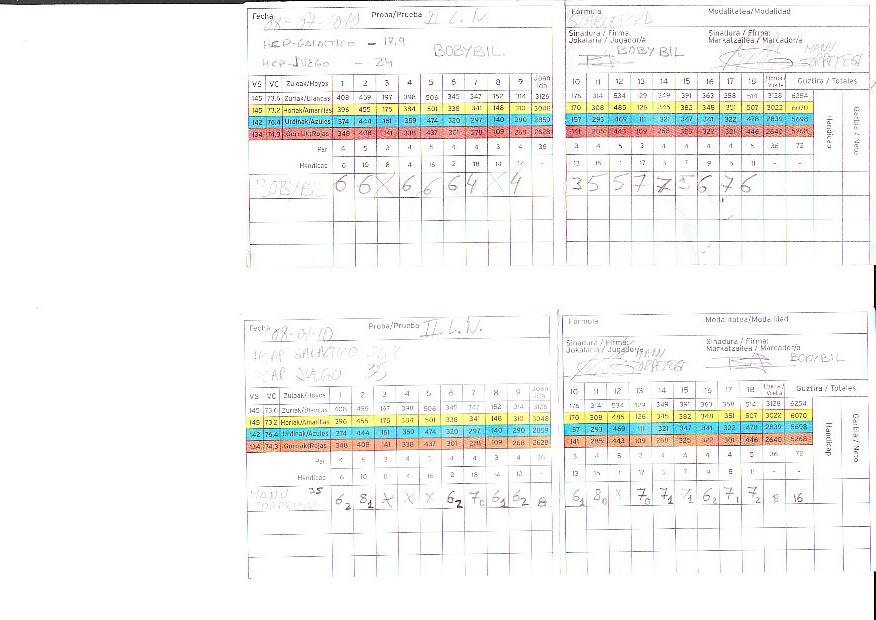 Fecha 08-07-010 Proba/Prueba II L.N.
HCP-GALACTICO - 17.9
HCP-JUEGO - 24
BOBYBIL
VS VC Zuloak/Hoyos 1 2 3 4 5 6 7 8 9 Joan Ida
145 73.6 Zuriak/Blancas 408 459 197 398 506 345 347 152 314 3126
145 73.2 Horiak/Amarillas 396 455 175 384 501 338 341 148 310 3048
142 76.4 Urdinak/Azules 374 444 161 359 474 320 297 140 290 2859
134 74.3 Gorriak/Rojas 348 408 141 338 437 301 278 109 268 2628
Par 4 5 3 4 5 4 4 3 4 36
Handicap 6 10 8 4 16 2 18 14 12 -
BOBYBIL 6 6 X 6 6 6 4 X 4
Fórmula STABLEFORD Modalitatea/Modalidad
Sinadura / Firma: Jokalaria / Jugador/a BOBYBIL
Sinadura / Firma: Markatzailea / Marcador/a MANU TORPETEGI
10 11 12 13 14 15 16 17 18 Etorria/Vuelta Guztira / Totales
176 314 534 129 349 391 363 358 514 3128 6254
170 308 485 126 345 382 348 351 507 3022 6070
157 293 469 111 321 347 341 322 478 2839 5698
141 285 443 109 268 325 322 301 446 2640 5268
3 4 5 3 4 4 4 4 5 36 72
13 15 1 17 3 7 9 5 11 - -
3 5 5 7 7 5 6 7 6
Handicap
Garbia / Neto
Fecha 08-07-10 Proba/Prueba II L.N.
HCAP GALACTICO
HCAP JUEGO 35
VS VC Zuloak/Hoyos 1 2 3 4 5 6 7 8 9 Joan Ida
145 73.6 Zuriak/Blancas 408 459 197 398 506 345 347 152 314 3126
145 73.2 Horiak/Amarillas 396 455 175 384 501 338 341 148 310 3048
142 76.4 Urdinak/Azules 374 444 161 359 474 320 297 140 290 2859
134 74.3 Gorriak/Rojas 348 408 141 338 437 301 278 109 268 2628
Par 4 5 3 4 5 4 4 3 4 36
Handicap 6 10 8 4 16 2 18 14 12 -
MANU TORPETEGI 35 6 2 8 1 X X X 6 2 7 0 6 1 6 2 8
Fórmula Modalitatea/Modalidad
Sinadura / Firma: Jokalaria / Jugador/a MANU TORPETEGI
Sinadura / Firma: Markatzailea / Marcador/a BOBYBIL
10 11 12 13 14 15 16 17 18 Etorria/Vuelta Guztira / Totales
176 314 534 129 349 391 363 358 514 3128 6254
170 308 485 126 345 382 348 351 507 3022 6070
157 293 469 111 321 347 341 322 478 2839 5698
141 285 443 109 268 325 322 301 446 2640 5268
3 4 5 3 4 4 4 4 5 36 72
13 15 1 17 3 7 9 5 11 - -
6 1 8 0 X 7 0 7 1 7 1 6 2 7 1 7 2 8 16
Handicap
Garbia / Neto